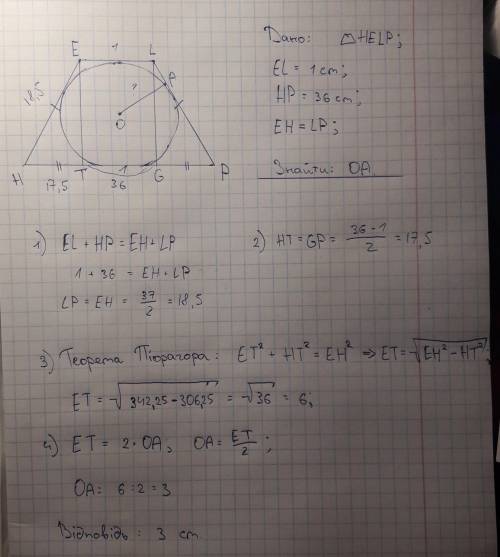 E 1 L
P
18,5
O
H T 1 G P
17,5 36
Дано: HELP;
EL = 1 cm;
HP = 36 cm;
EH = LP;
Знайти: OA
1) EL + HP = EH + LP
1 + 36 = EH + LP
LP = EH = 37/2 = 18,5
2) HT = GP = (36 - 1)/2 = 17,5
3) Теорема Піфагора: ET² + HT² = EH² ⇒ ET = √(EH² - HT²)
ET = √(342,25 - 306,25) = √36 = 6;
4) ET = 2 · OA, OA = ET/2;
OA = 6 : 2 = 3
Відповідь: 3 cm